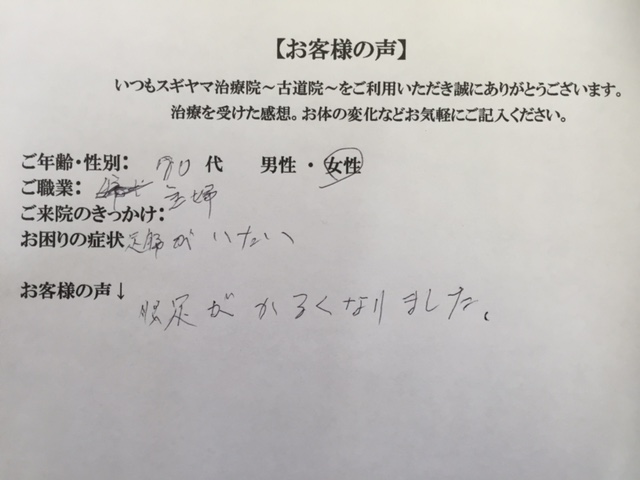 【お客様の声】
いつもスギヤマ治療院～古道院～をご利用いただき誠にありがとうございます。
治療を受けた感想。お体の変化などお気軽にご記入ください。
ご年齢・性別： 70 代 男性・女性
ご職業： 主婦
ご来院のきっかけ：
お困りの症状 足腰がいたい
お客様の声↓
腰足がかるくなりました。